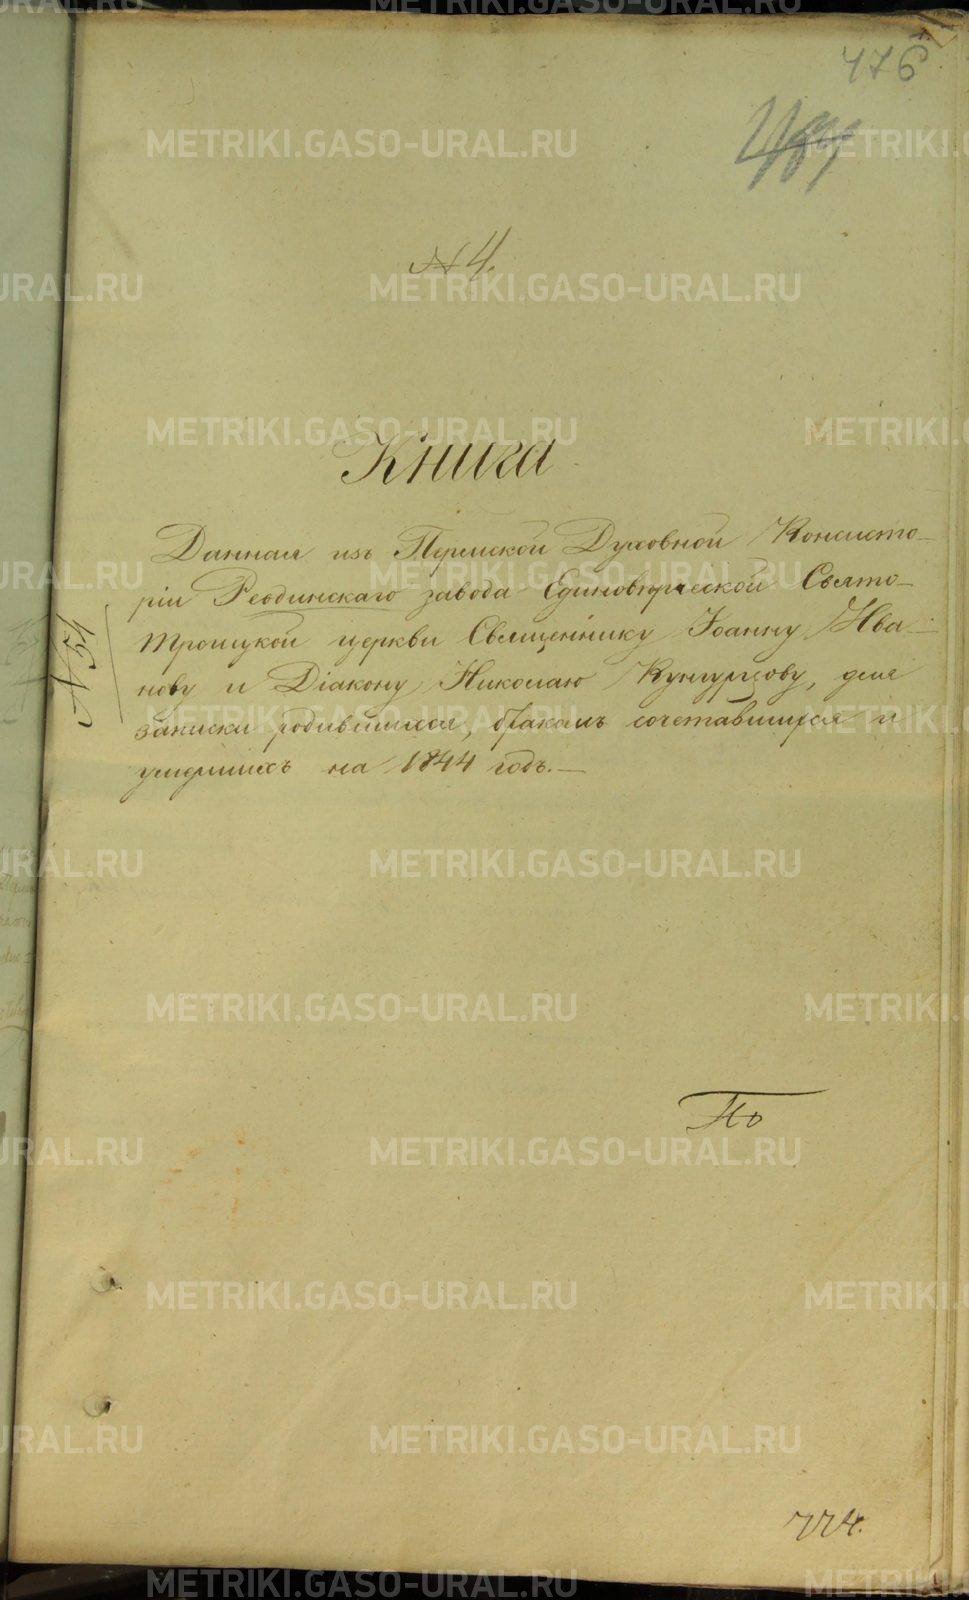 476
№ 4.
Книга
Данная изъ Пермской Духовной Консисто-
ріи Ревдинскаго завода Единоверческой Свято-
троицкой церкви Священнику Іоанну Ива-
нову и Діакону Николаю Кунгурцову, для
записки родившихся, бракомъ сочетавшихся и
умершихъ на 1844 годъ.—
По
774.
METRIKI.GASO-URAL.RU